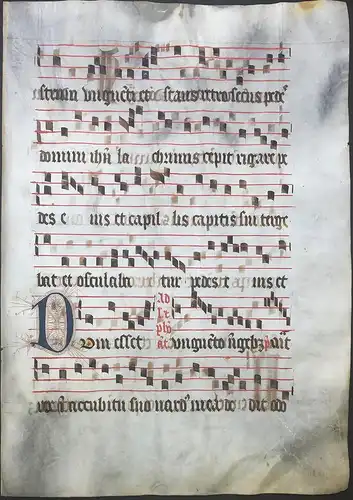 strum unguenti et stans retro secus pedes
domini ihu lacrimis cepit rigare pe
des eius et capillis capitis sui terge
bat et osculabatur pedes eius et
Dum esset
unguento ungebat
rex in accubitu suo nardus mea dedit odo